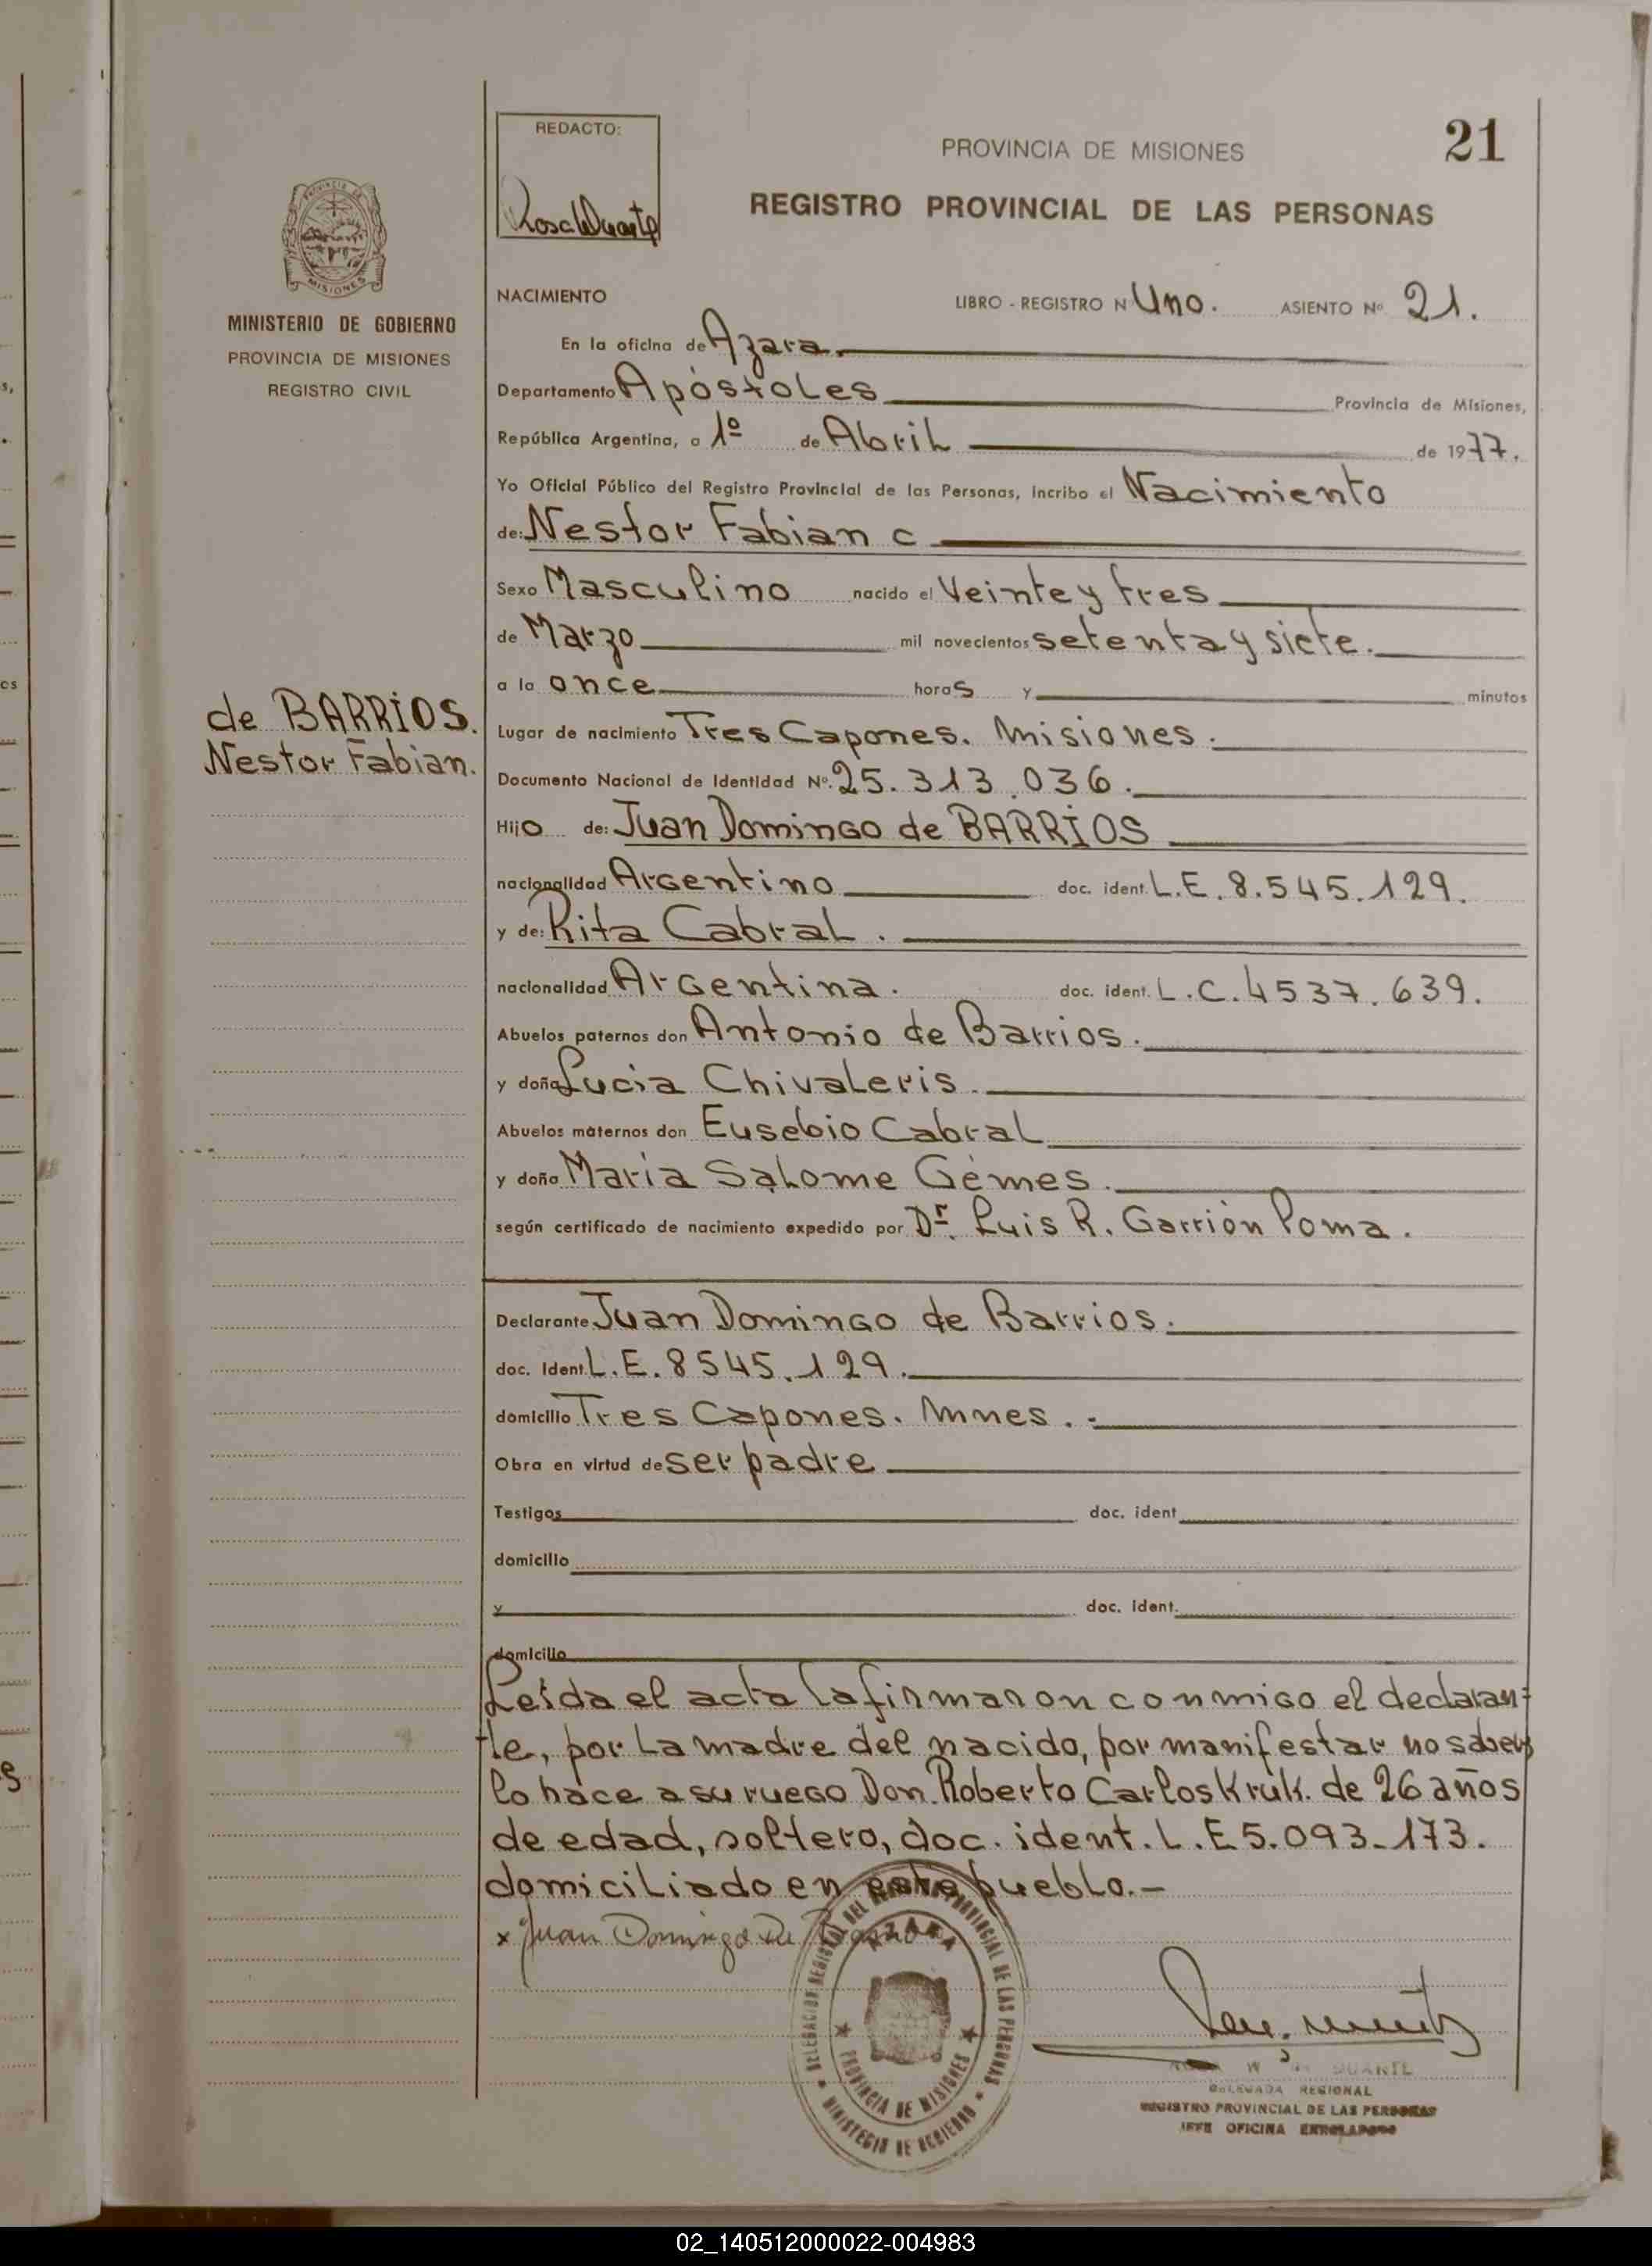 REDACTO:
PROVINCIA DE MISIONES
21
REGISTRO PROVINCIAL DE LAS PERSONAS
MISIONES
MINISTERIO DE GOBIERNO
PROVINCIA DE MISIONES
REGISTRO CIVIL
de BARRIOS.
Nestor Fabian.
NACIMIENTO LIBRO - REGISTRO Nº Uno. ASIENTO Nº 21.
En la oficina de Azara.
Departamento Apóstoles Provincia de Misiones,
República Argentina, a 1º de Abril de 1977.
Yo Oficial Público del Registro Provincial de las Personas, incribo el Nacimiento
de: Nestor Fabian c
Sexo Masculino nacido el Veinte y tres
de Marzo mil novecientos setenta y siete.
a la once horas y minutos
Lugar de nacimiento Tres Capones. Misiones.
Documento Nacional de Identidad Nº. 25.313.036.
Hijo de: Juan Domingo de BARRIOS
nacionalidad Argentino doc. ident. L.E. 8.545.129.
y de: Rita Cabral.
nacionalidad Argentina. doc. ident. L.C. 4537.639.
Abuelos paternos don Antonio de Barrios.
y doña Lucia Chivaleris.
Abuelos maternos don Eusebio Cabral
y doña María Salome Gèmes.
según certificado de nacimiento expedido por Dr. Luis R. Garriòn Poma.
Declarante Juan Domingo de Barrios.
doc. Ident. L.E. 8545.129.
domicilio Tres Capones. Mnnes.
Obra en virtud de ser padre
Testigos doc. ident
domicilio
y doc. ident.
domicilio
Leída el acta la firmaron conmigo el declaran-
te, por la madre del nacido, por manifestar no saber
lo hace a su ruego Don. Roberto Carlos Kruk. de 26 años
de edad, soltero, doc. ident. L.E 5.093.173.
domiciliado en este pueblo.-
x Juan Domingo De Barrios
DELEGACION REGIONAL DEL REGISTRO PROVINCIAL DE LAS PERSONAS
AZARA
PROVINCIA DE MISIONES
MINISTERIO DE GOBIERNO
DUARTE
DELEGADA REGIONAL
REGISTRO PROVINCIAL DE LAS PERSONAS
JEFE OFICINA ENROLADORA
02_140512000022-004983